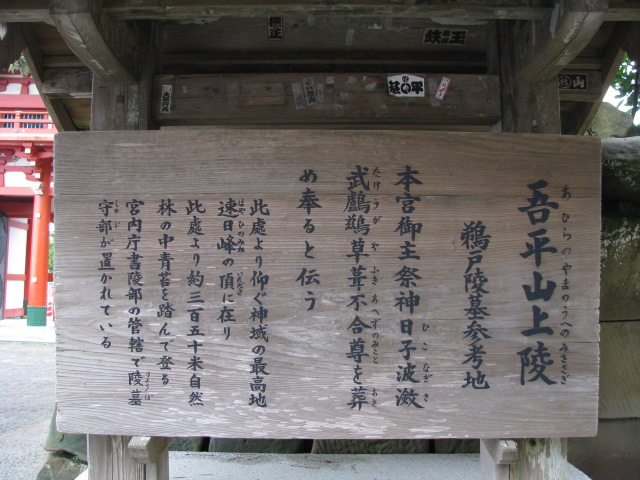 吾平山上陵
あひらのやまのうへのみささぎ
鵜戸陵墓参考地
本宮御主祭神日子波瀲
ひこなぎさ
武鸕鷀草葺不合尊を葬
たけうがやふきあへずのみことおさ
め奉ると伝う
此處より仰ぐ神域の最高地
速日峰の頂に在り
はやひのみねいただき
此處より約三百五十米自然
林の中青苔を踏んで登る
宮内庁書陵部の管轄で陵墓
りょうぼ
守部が置かれている
しゅぶ
鉄王
山